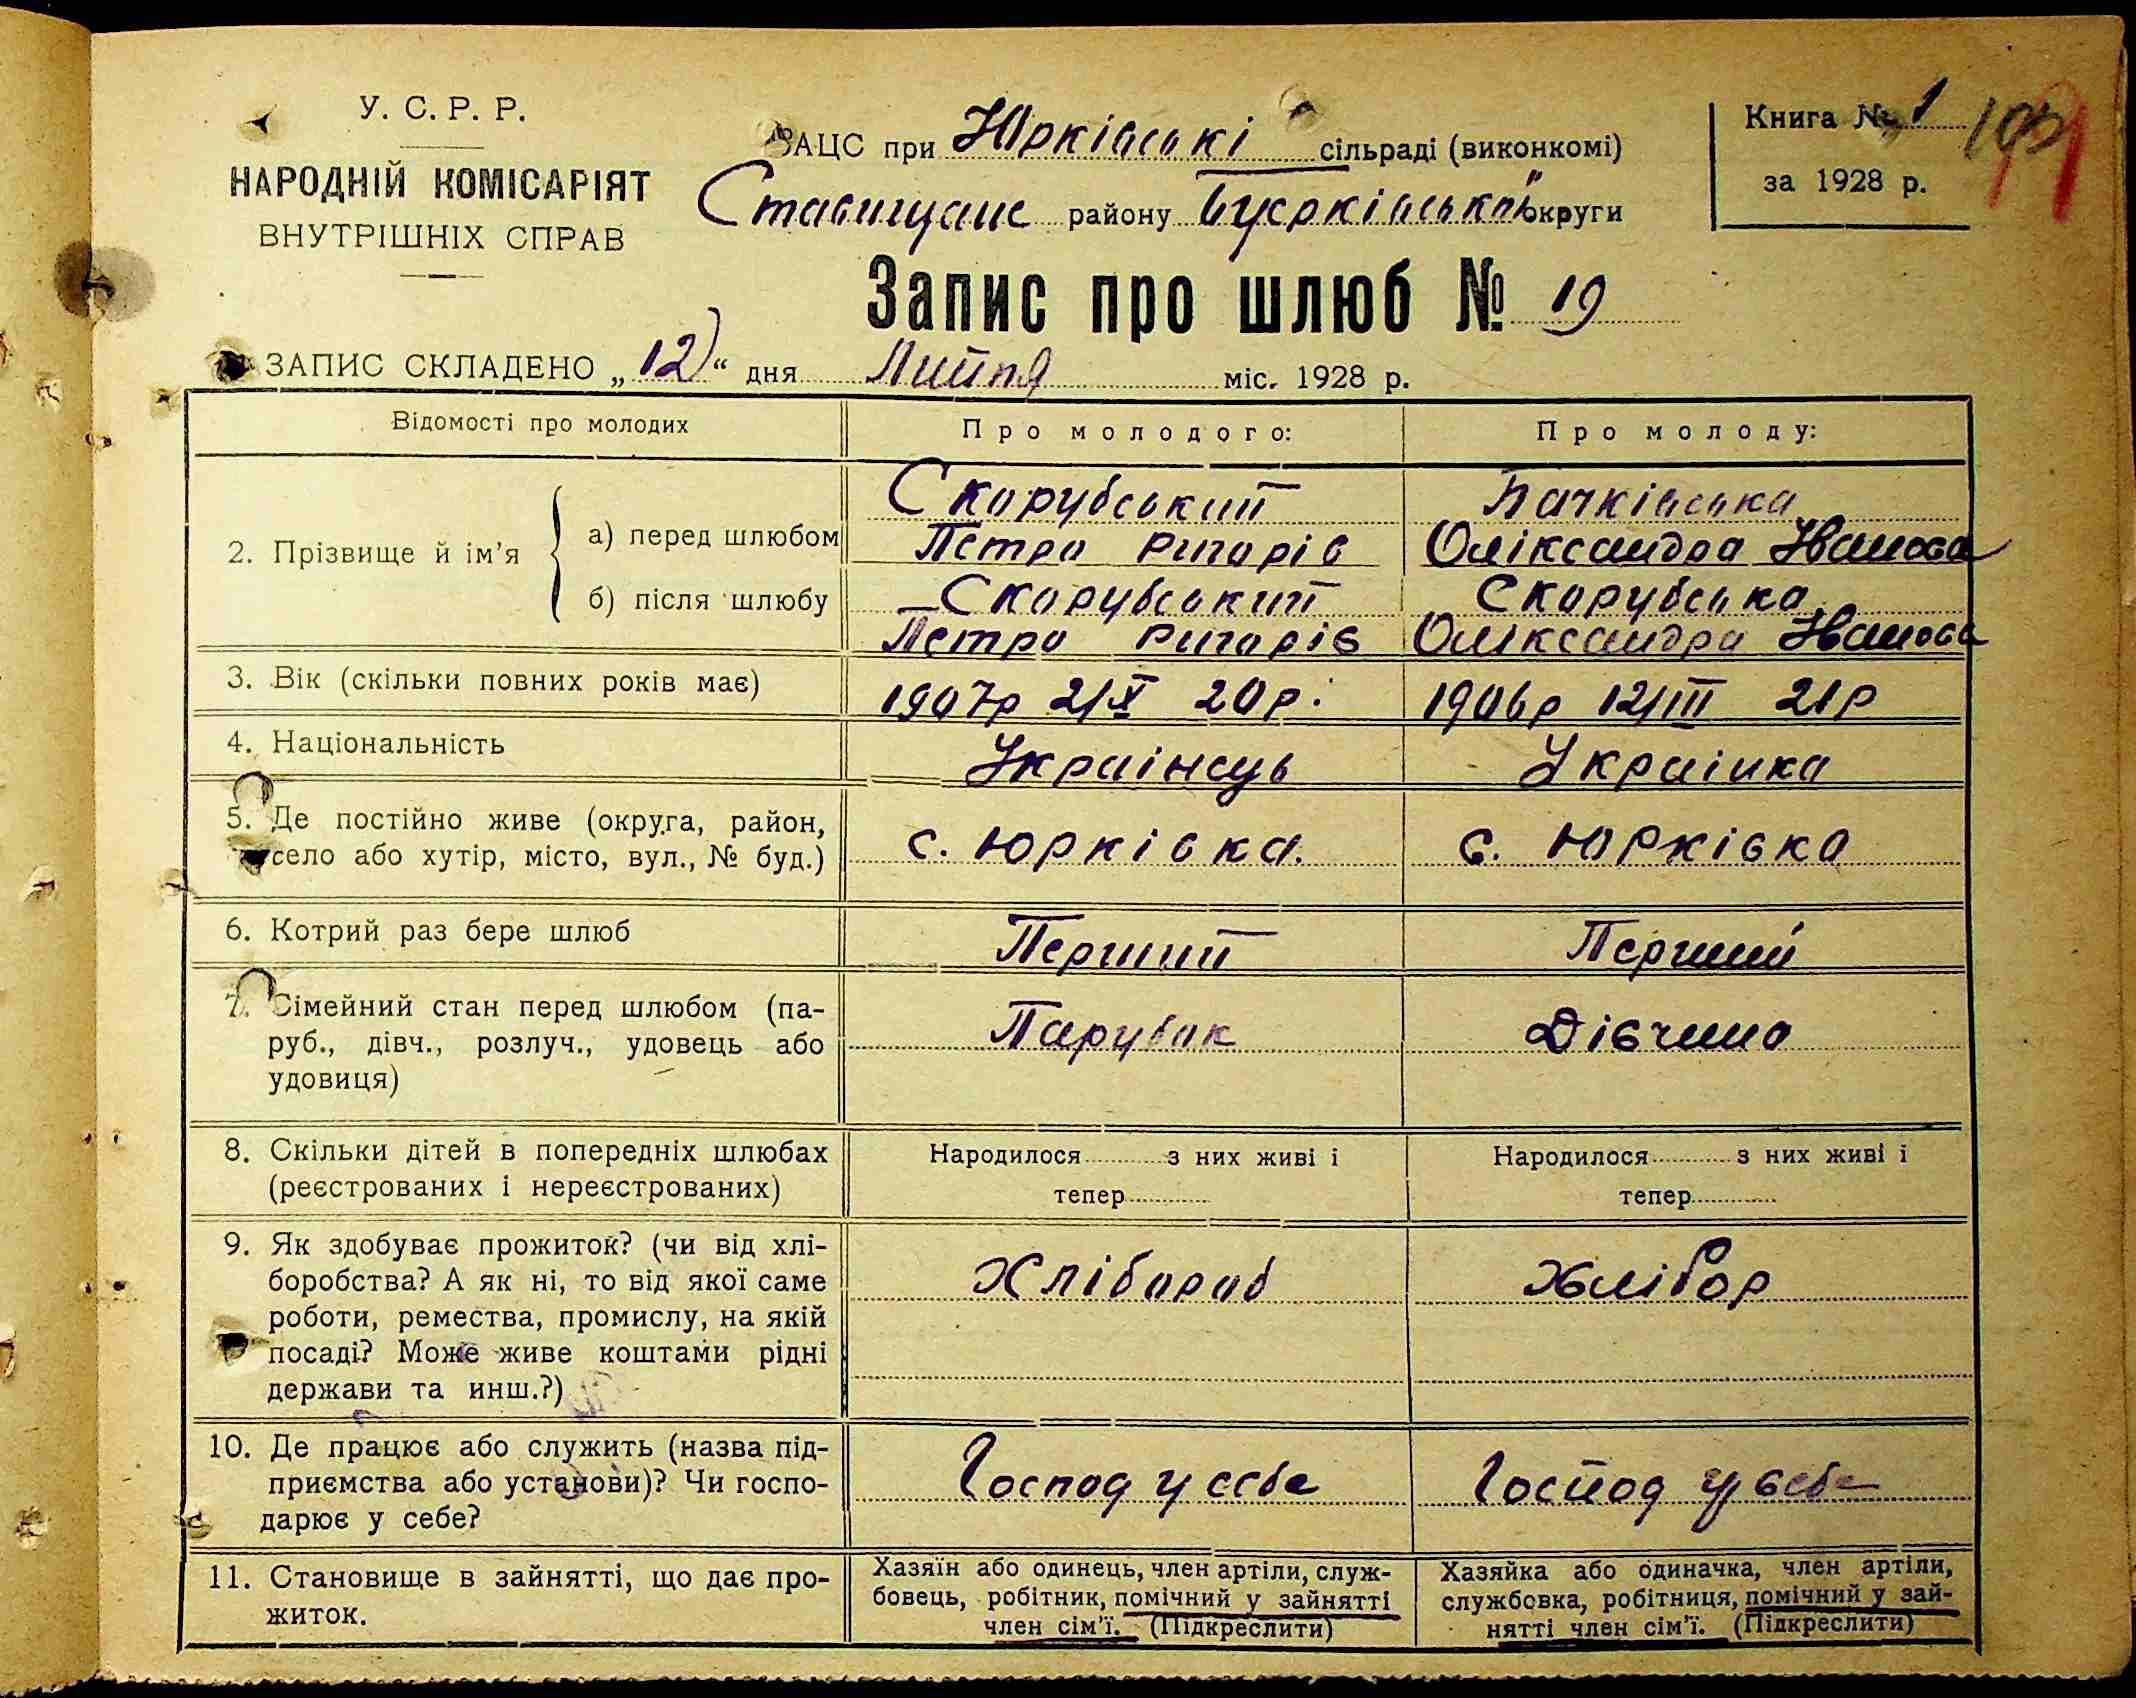 У. С. Р. Р.
НАРОДНІЙ КОМІСАРІЯТ
ВНУТРІШНІХ СПРАВ
ЗАЦС при Юрківські сільраді (виконкомі)
району округи
Книга № 1
за 1928 р.
Запис про шлюб № 19
ЗАПИС СКЛАДЕНО „12“ дня Липня міс. 1928 р.
Відомості про молодих
Про молодого:
Про молоду:
2. Прізвище й ім’я
а) перед шлюбом
Скорубський
Петро Григорів
Бачківська
Оліксандра Іванова
б) після шлюбу
Скорубський
Петро Григорів
Скорубська
Оліксандра Іванова
3. Вік (скільки повних років має)
1907р 2/X 20р.
1906р 12/III 21р
4. Національність
Українець
Українка
5. Де постійно живе (округа, район,
село або хутір, місто, вул., № буд.)
с. Юрківка.
с. Юрківка
6. Котрий раз бере шлюб
Перший
Перший
7. Сімейний стан перед шлюбом (па-
руб., дівч., розлуч., удовець або
удовиця)
Парубок
Дівчина
8. Скільки дітей в попередніх шлюбах
(реєстрованих і нереєстрованих)
Народилося з них живі і
тепер
Народилося з них живі і
тепер
9. Як здобуває прожиток? (чи від хлі-
боробства? А як ні, то від якої саме
роботи, ремества, промислу, на якій
посаді? Може живе коштами рідні
держави та инш.?)
Хлібороб
Хлібор
10. Де працює або служить (назва під-
приємства або установи)? Чи госпо-
дарює у себе?
Господ у себе
Господ у себе
11. Становище в зайнятті, що дає про-
житок.
Хазяїн або одинець, член артіли, служ-
бовець, робітник, помічний у зайнятті
член сім’ї. (Підкреслити)
Хазяйка або одиначка, член артіли,
службовка, робітниця, помічний у зай-
нятті член сім’ї. (Підкреслити)